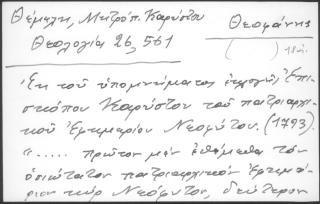 Θέμελη, Μητρόπ. Καρύστου
Θεολογία 26, 561
Θεοφάνης
( ) 18αι.
Ἐκ τοῦ ὑπομνήματος ἐκλογῆς Ἐπι-
σκόπου Καρύστου τοῦ πατριαρχι-
κοῦ Ἐφημερίου Νεοφύτου. (1793).
"..... πρῶτον μὲν ἐθέμεθα τὸν
ὁσιώτατον πατριαρχικὸν Ἐφημέ-
ριον κύρ Νεόφυτον, δεύτερον